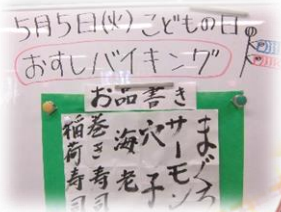 5月5日(火)こどもの日
おすしバイキング
お品書き
まぐろ
サーモン
穴子
海老
巻き寿司
稲荷寿司